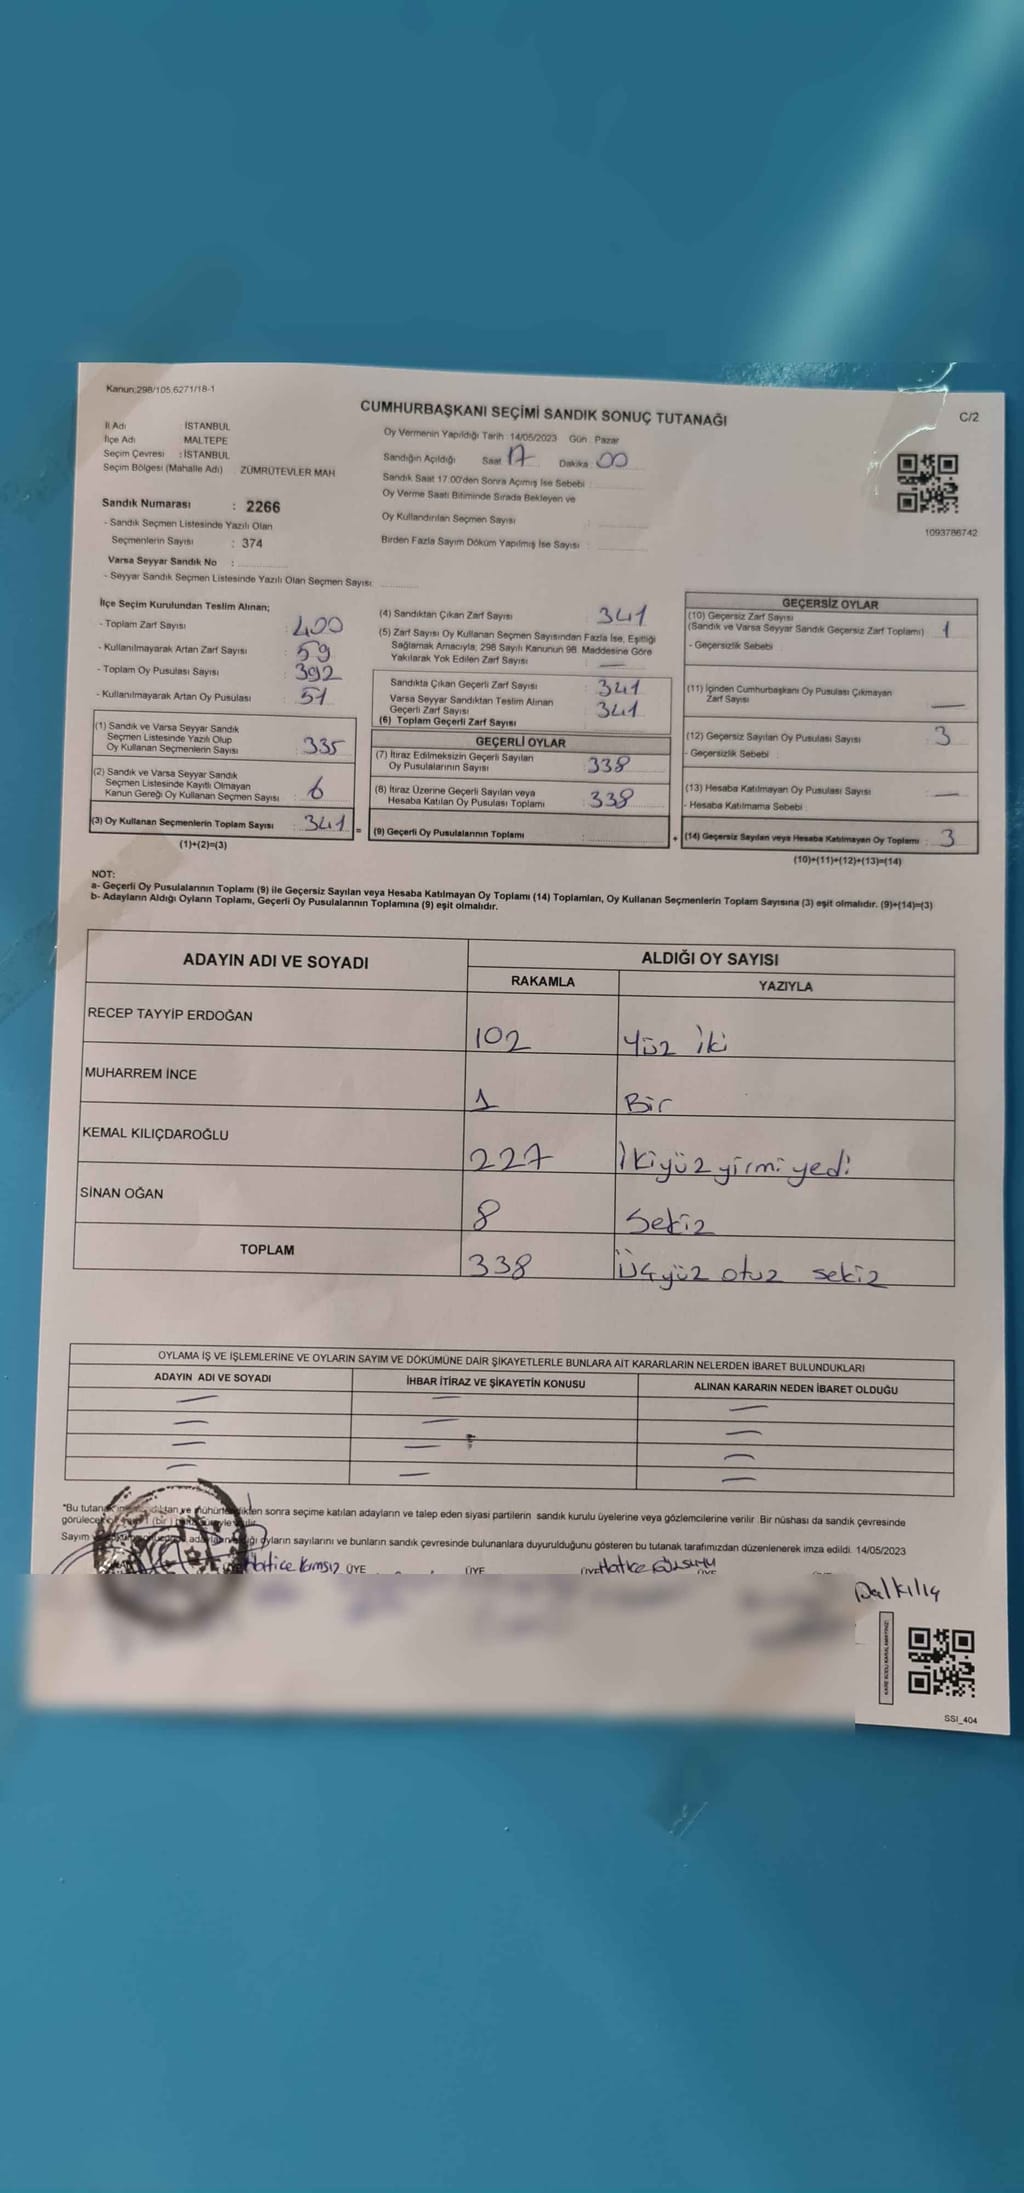 Kanun:298/105,6271/18-1
CUMHURBAŞKANI SEÇİMİ SANDIK SONUÇ TUTANAĞI
C/2
İl Adı İSTANBUL
İlçe Adı MALTEPE
Seçim Çevresi : İSTANBUL
Seçim Bölgesi (Mahalle Adı) ZÜMRÜTEVLER MAH
Oy Vermenin Yapıldığı Tarih: 14/05/2023 Gün Pazar
Sandığın Açıldığı Saat 17 Dakika 00
Sandık Saat 17:00'den Sonra Açımış İse Sebebi :
Oy Verme Saati Bitiminde Sırada Bekleyen ve
Oy Kullandırılan Seçmen Sayısı :
Birden Fazla Sayım Döküm Yapılmış İse Sayısı :
1093786742
Sandık Numarası : 2266
- Sandık Seçmen Listesinde Yazılı Olan
Seçmenlerin Sayısı : 374
Varsa Seyyar Sandık No :
- Seyyar Sandık Seçmen Listesinde Yazılı Olan Seçmen Sayısı:
İlçe Seçim Kurulundan Teslim Alınan;
- Toplam Zarf Sayısı : 400
- Kullanılmayarak Artan Zarf Sayısı : 59
- Toplam Oy Pusulası Sayısı : 392
- Kullanılmayarak Artan Oy Pusulası : 51
(1) Sandık ve Varsa Seyyar Sandık
Seçmen Listesinde Yazılı Olup
Oy Kullanan Seçmenlerin Sayısı : 335
(2) Sandık ve Varsa Seyyar Sandık
Seçmen Listesinde Kayıtlı Olmayan
Kanun Gereği Oy Kullanan Seçmen Sayısı : 6
(3) Oy Kullanan Seçmenlerin Toplam Sayısı : 341
(1)+(2)=(3)
=
(4) Sandıktan Çıkan Zarf Sayısı 341
(5) Zarf Sayısı Oy Kullanan Seçmen Sayısından Fazla İse, Eşitliği
Sağlamak Amacıyla, 298 Sayılı Kanunun 98. Maddesine Göre
Yakılarak Yok Edilen Zarf Sayısı : —
Sandıkta Çıkan Geçerli Zarf Sayısı : 341
Varsa Seyyar Sandıktan Teslim Alınan
Geçerli Zarf Sayısı : 341
(6) Toplam Geçerli Zarf Sayısı
GEÇERLİ OYLAR
(7) İtiraz Edilmeksizin Geçerli Sayılan
Oy Pusulalarının Sayısı : 338
(8) İtiraz Üzerine Geçerli Sayılan veya
Hesaba Katılan Oy Pusulası Toplamı : 338
(9) Geçerli Oy Pusulalarının Toplamı :
+
GEÇERSİZ OYLAR
(10) Geçersiz Zarf Sayısı
(Sandık ve Varsa Seyyar Sandık Geçersiz Zarf Toplamı) : 1
- Geçersizlik Sebebi :
(11) İçinden Cumhurbaşkanı Oy Pusulası Çıkmayan
Zarf Sayısı : —
(12) Geçersiz Sayılan Oy Pusulası Sayısı : 3
- Geçersizlik Sebebi :
(13) Hesaba Katılmayan Oy Pusulası Sayısı : —
- Hesaba Katılmama Sebebi :
(14) Geçersiz Sayılan veya Hesaba Katılmayan Oy Toplamı : 3
(10)+(11)+(12)+(13)=(14)
NOT:
a- Geçerli Oy Pusulalarının Toplamı (9) ile Geçersiz Sayılan veya Hesaba Katılmayan Oy Toplamı (14) Toplamları, Oy Kullanan Seçmenlerin Toplam Sayısına (3) eşit olmalıdır. (9)+(14)=(3)
b- Adayların Aldığı Oyların Toplamı, Geçerli Oy Pusulalarının Toplamına (9) eşit olmalıdır.
ADAYIN ADI VE SOYADI ALDIĞI OY SAYISI
RAKAMLA YAZIYLA
RECEP TAYYİP ERDOĞAN 102 Yüz iki
MUHARREM İNCE 1 Bir
KEMAL KILIÇDAROĞLU 227 İkiyüz yirmi yedi
SİNAN OĞAN 8 Sekiz
TOPLAM 338 Üçyüz otuz sekiz
OYLAMA İŞ VE İŞLEMLERİNE VE OYLARIN SAYIM VE DÖKÜMÜNE DAİR ŞİKAYETLERLE BUNLARA AİT KARARLARIN NELERDEN İBARET BULUNDUKLARI
ADAYIN ADI VE SOYADI İHBAR İTİRAZ VE ŞİKAYETİN KONUSU ALINAN KARARIN NEDEN İBARET OLDUĞU
*Bu sonra seçime katılan adayların ve talep eden siyasi partilerin sandık kurulu üyelerine veya gözlemcilerine verilir. Bir nüshası da sandık çevresinde
(bir)
Sayım oyların sayılarını ve bunların sandık çevresinde bulunanlara duyurulduğunu gösteren bu tutanak tarafımızdan düzenlenerek imza edildi. 14/05/2023
Hatice ÜYE ÜYE Hatice
Dalkılıç
SSI_404